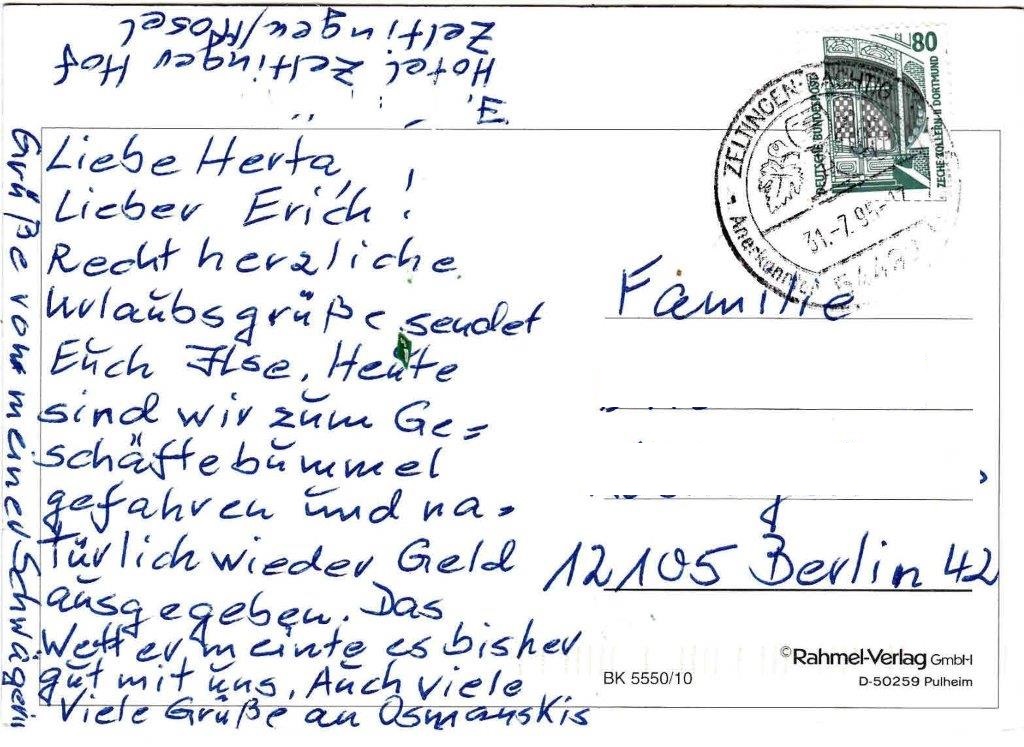 E.
Hotel Zeltinger Hof
Zeltingen/Mosel
Liebe Herta,
Lieber Erich!
Recht herzliche
Urlaubsgrüße sendet
Euch Ilse. Heute
sind wir zum Ge=
schäftebummel
gefahren und na=
türlich wieder Geld
ausgegeben. Das
Wetter meinte es bisher
gut mit uns. Auch viele
Viele Grüße an Osmanskis
Grüße von meiner Schwägerin
80
DEUTSCHE BUNDESPOST
ZECHE ZOLLERN II DORTMUND
ZELTINGEN-RACHTIG
31.-7.95-17
Anerkannter
Familie
12105 Berlin 42
©Rahmel-Verlag GmbH
D-50259 Pulheim
BK 5550/10